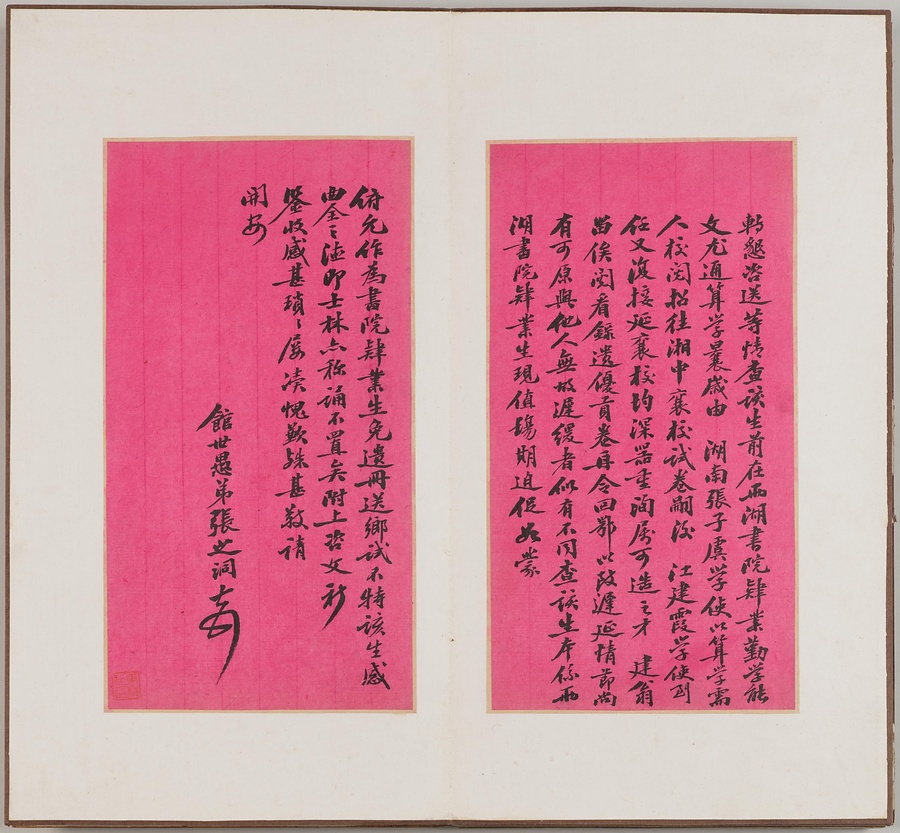 轉懇咨送等情查該生前在兩湖書院肄業勤學能
文尤通算學曩歲由 湖南張子虞學使以算學需
人校閱招往湘中襄校試卷嗣後 江建霞學使到
任又復接延襄校均深器重洵屬可造之才 建翁
留俟閱看錄遺優貢卷再令回鄂以致遲延情節尚
有可原與他人無故遲緩者似有不同查該生本係兩
湖書院肄業生現值場期迫促如蒙
俯允作為書院肄業生免遺冊送鄉試不特該生感
曲全之德即士林亦稱誦不置矣附上咨文祈
鑒收感甚瑣瑣屢瀆愧歉殊甚敬請
開安
館世愚弟張之洞